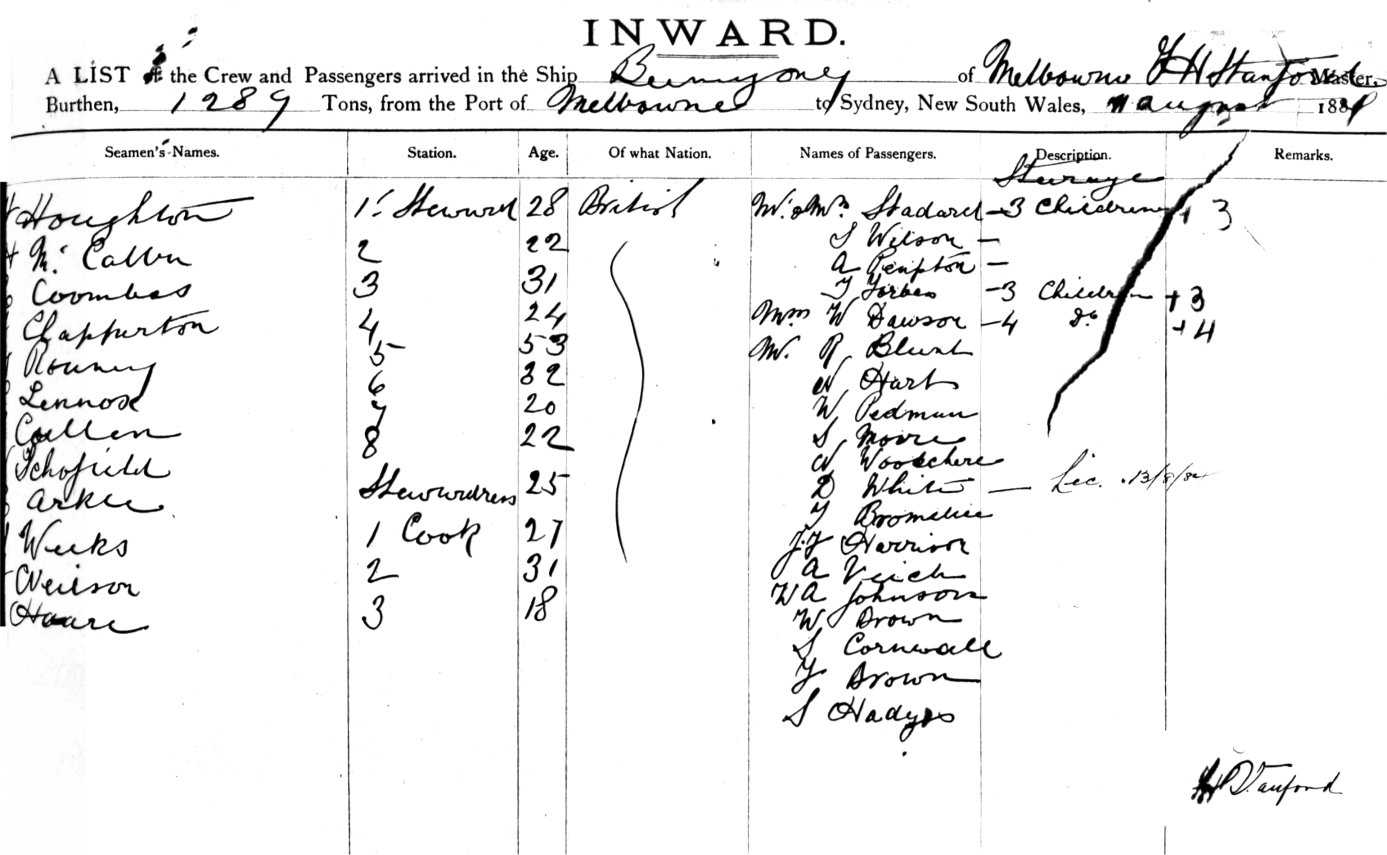 INWARD.
A LIST of the Crew and Passengers arrived in the Ship Buninyong of Melbourne F H Stanford Master.
Burthen, 1289 Tons, from the Port of Melbourne to Sydney, New South Wales, 11 August 188
Seamen's Names. Station. Age. Of what Nation. Names of Passengers. Description. Remarks.
Steerage
Houghton 1st Steward 28 British Mr & Mrs Stadard - 3 Children + 3
2 22 S Wilson -
Coombes 3 31 A -
4 24 T Forbes - 3 Children + 3
Rooney 5 53 Mrs W Dawson - 4 Do + 4
Lennox 6 32 Mr R Blunt
Cullen 7 20 N Hart
Schofield 8 22 W Pedman
Arkie Stewardess 25 S Moore
Weeks 1 Cook 27 N
Neilson 2 31 D White - Lic. 13/8/84
Hoare 3 18 T
J.F Harrison
A Veich
W A Johnson
W Brown
S Cornwall
F Brown
S
Stanford